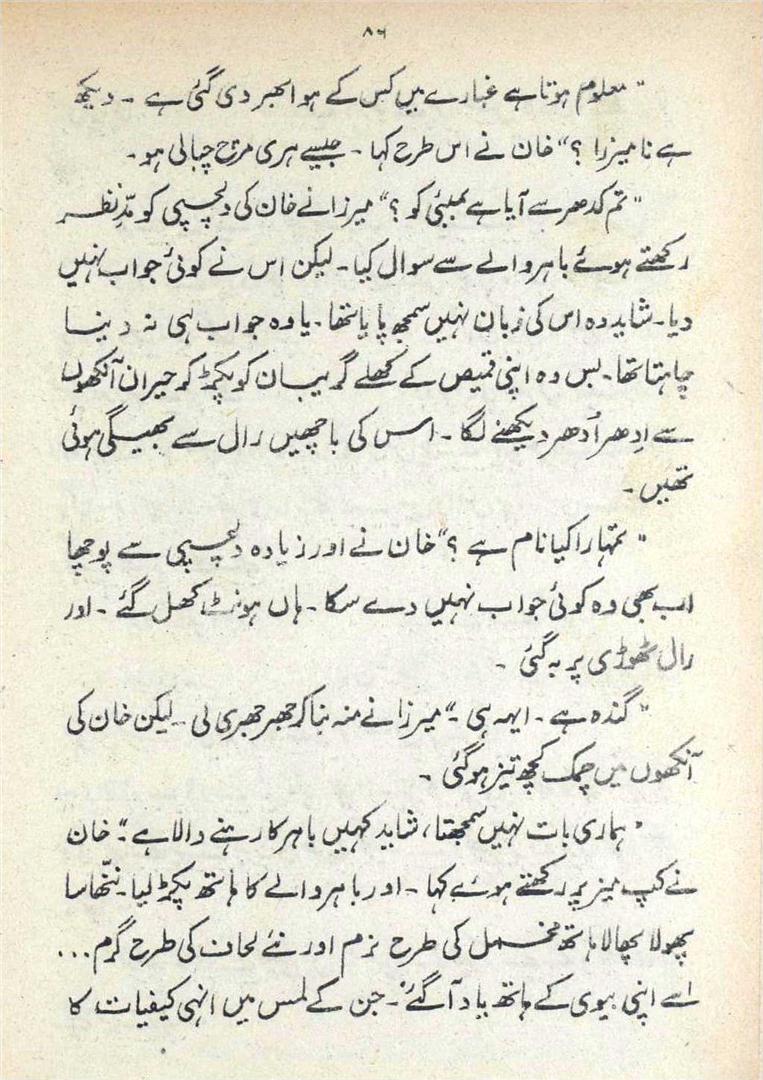 ۸۶
"معلوم ہوتا ہے غبارے میں کس کے ہوا بھر دی گئی ہے ۔ دیکھ
ہے نا میرزا ؟" خان نے اس طرح کہا ۔ جیسے ہری مرچ چبالی ہو ۔
"تم کدھر سے آیا ہے بمبئی کو ؟" میرزا نے خان کی دلچسپی کو مدِّنظر
رکھتے ہوئے باہر والے سے سوال کیا ۔ لیکن اس نے کوئی جواب نہیں
دیا ۔ شاید وہ اس کی زبان نہیں سمجھ پایا تھا ۔ یا وہ جواب ہی نہ دینا
چاہتا تھا ۔ بس وہ اپنی قمیص کے کھلے گریبان کو پکڑ کر حیران آنکھوں
سے اِدھر اُدھر دیکھنے لگا ۔ اس کی باچھیں رال سے بھیگی ہوئی
تھیں ۔
"تمہارا کیا نام ہے ؟" خان نے اور زیادہ دلچسپی سے پوچھا
اب بھی وہ کوئی جواب نہیں دے سکا ۔ ہاں ہونٹ کھل گئے ۔ اور
رال ٹھوڑی پر بہ گئی ۔
"گندہ ہے ۔ ایہہ ہی ۔" میرزا نے منہ بنا کر جھرجھری لی ۔ لیکن خان کی
آنکھوں میں چمک کچھ تیز ہو گئی ۔
"ہماری بات نہیں سمجھتا، شاید کہیں باہر کا رہنے والا ہے ۔" خان
نے کپ میز پر رکھتے ہوئے کہا ۔ اور باہر والے کا ہاتھ پکڑ لیا ۔ ننّھا سا
پھولا پھالا ہاتھ مخمل کی طرح نرم اور نئے لحاف کی طرح گرم ...
اسے اپنی بیوی کے ہاتھ یاد آگئے ۔ جن کے لمس میں انہی کیفیات کا